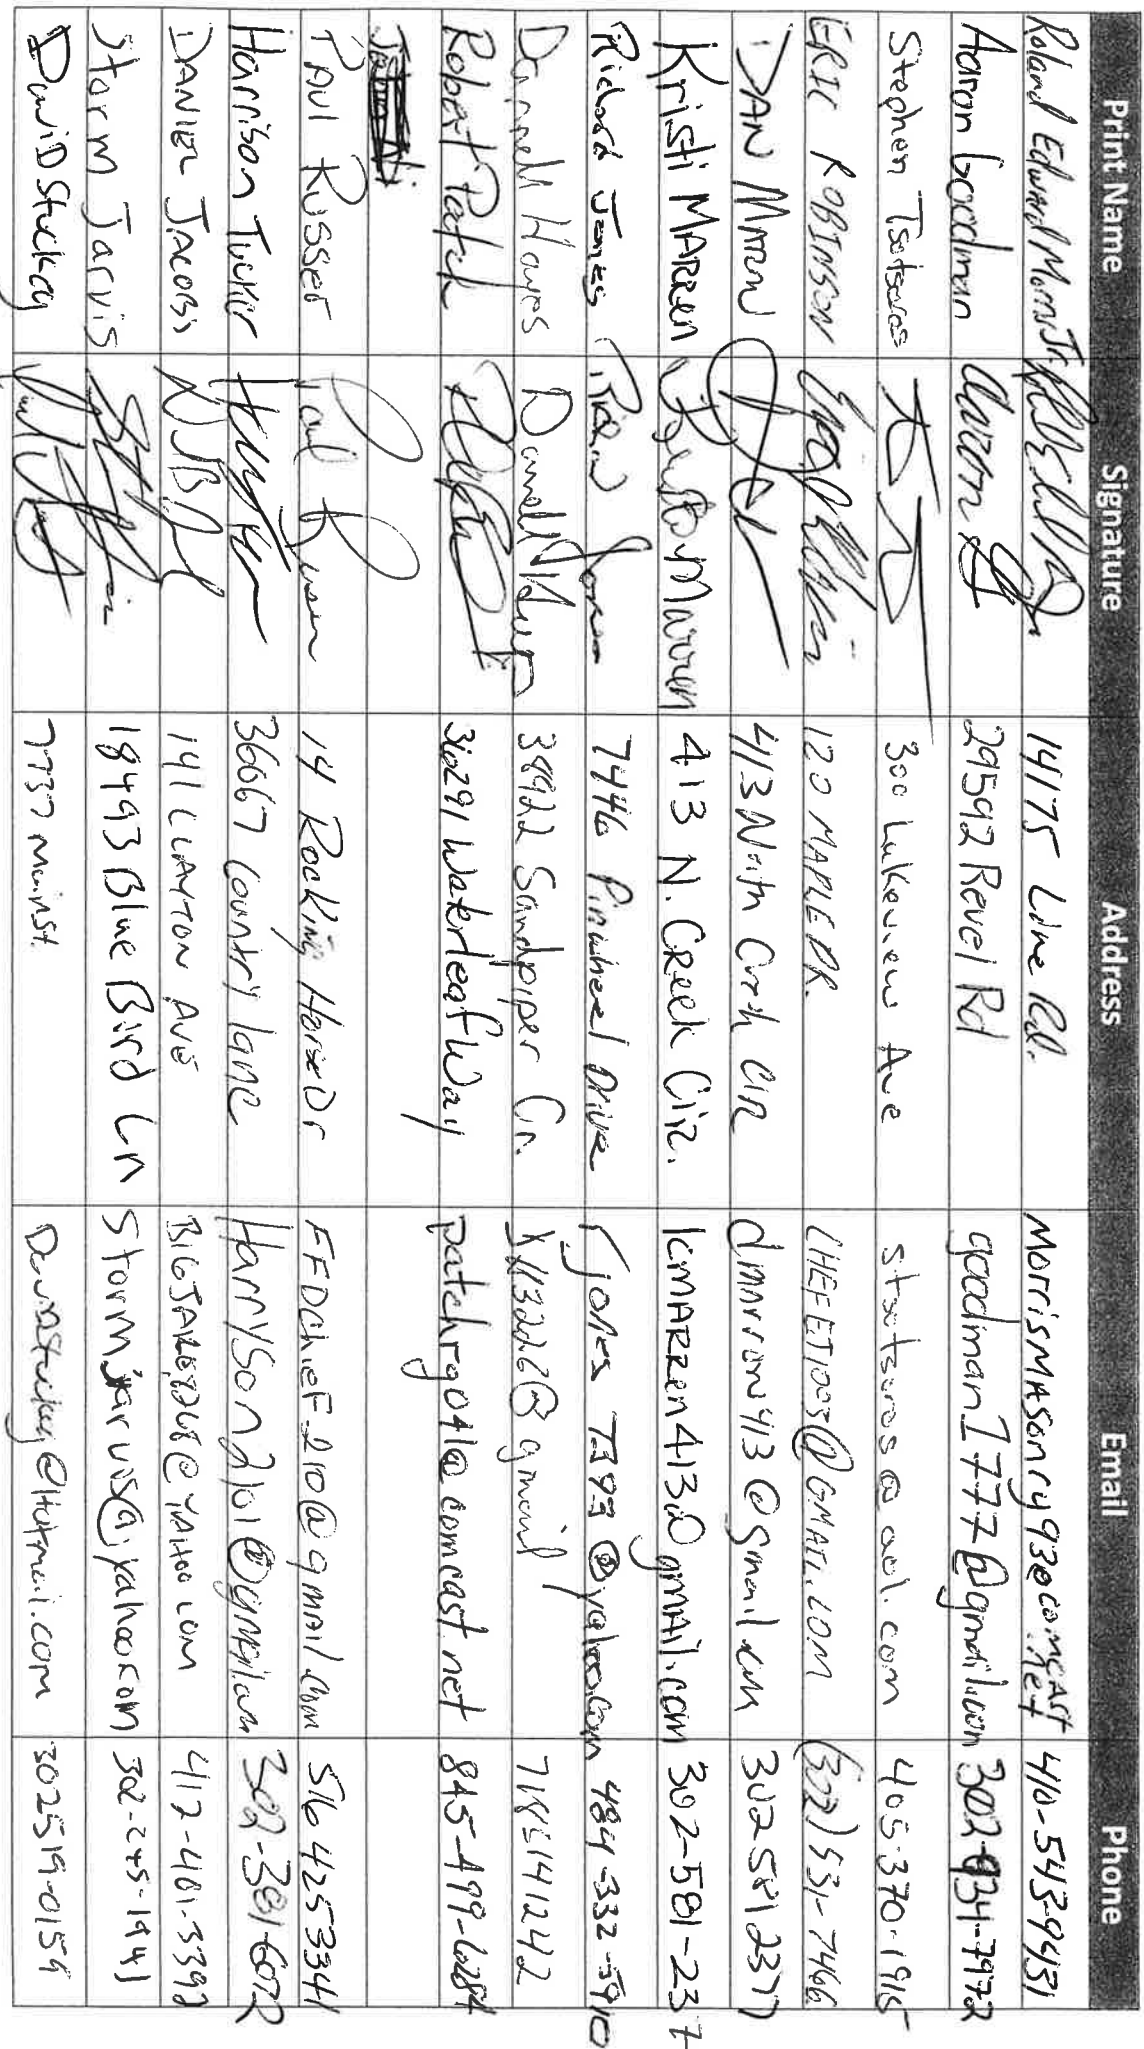 Print Name Signature Address Email Phone
Roland Edward Morris Jr 14175 Line Rd. MorrisMAsonry93@comcast.net 410-543-9431
Aaron Goodman Aaron 29592 Revel Rd goodman1777@gmail.com 302-934-7972
Stephen Tsotsoros 300 Lakeview Ave stsotsoros@aol.com 405-370-1915
ERIC ROBINSON 120 MAPLE DR. CHEFET1003@GMAIL.COM (302)531-7466
DAN Marren 413 North Creek Cir dmarren413@gmail.com 302 581 2377
Kristi MARREN Kristi Marren 413 N. CReek Cir. kmARREN413@gmail.com 302-581-237
Richard Jones 7446 Pinwheel Drive rjones7393@yahoo.com 484-332-5910
Darnell Hayes Darnell 38922 Sandpiper Cir. @gmail 7186141242
Robert Patch 36291 Waterleaf Way patchrg041@comcast.net 845-499-6284
PAUl RUSSEll Paul 14 Rocking Horse Dr FFDChieF210@gmail.com 516 425 3341
Harrison Tucker 36667 Country lane HarrySon2101@gmail.com 302-381-6072
DANIEL JACOBS 141 CLAYTON AVE BIGJAKE8268@YAHOO.COM 417-401-3392
Storm Jarvis 18493 Blue Bird Ln stormjarvis@yahoo.com 302-245-1941
DaviD Stuckey 7737 Main st. Davidstuckey@Hotmail.com 302519-0159